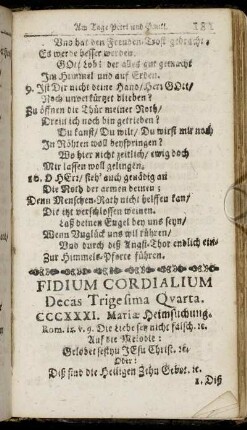 Am Tage Petri und Pauli. 181
Und hat den Freuden-Trost gebracht,
Es werde besser werden.
GOtt Lob! der alles gut gemacht
Im Himmel und auf Erden.
9. Ist Dir nicht deine Hand/ Herr GOtt/
Noch unverkürzet blieben?
Zu öffnen die Thür meiner Noth/
Drein ich noch bin getrieben?
Du kanst/ Du wilt/ Du wirst mir noch
In Nöhten woll beyspringen?
Wo hier nicht zeitlich/ ewig doch
Mir lassen woll gelingen.
10. O HErr/ sieh' auch genädig an
Die Noth der armen deinen;
Denn Menschen-Rath nicht helffen kan/
Die itzt verschlossen weinen.
Laß deinen Engel bey uns seyn/
Wenn Unglück uns wil rühren/
Und durch diß Angst-Thor endlich ein
Zur Himmels-Pforte führen.
FIDIUM CORDIALIUM
Decas Trigesima Qvarta.
CCCXXXI. Mariæ Heimsuchung.
Rom. 12. v. 9. Die Liebe sey nicht falsch. ꝛc.
Auf die Melodie:
Gelobet seystu JEsu Christ. ꝛc.
Oder:
Diß sind die Heiligen Zehn Gebot. ꝛc.
1. Diß